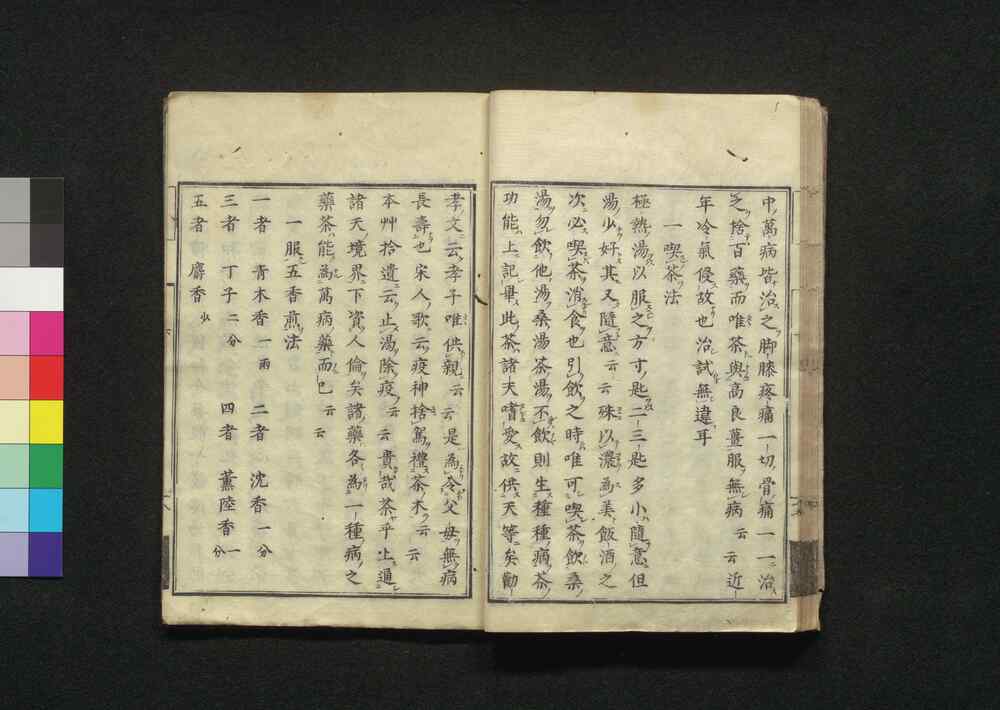 中萬病皆治之脚膝疼痛一切骨痛一一治
之捨百藥而唯茶與高良薑服無病云云近
年冷氣侵故也治試無違耳
一喫茶法
極熱湯以服之方寸匙二三匙多少隨意但
湯少好其又隨意云云殊以濃為美飯酒之
次必喫茶消食也引飲之時唯可喫茶飲桑
湯勿飲他湯桑湯茶湯不飲則生種種病茶
功能上記畢此茶諸天嗜愛故供天等矣勸
孝文云孝子唯供親云云是為令父母無病
長壽也宋人歌云疫神捨駕禮茶木云云
本艸拾遺云止渴除疫云云貴哉茶乎上通
諸天境界下資人倫矣諸藥各為一種病之
藥茶能為萬病藥而已云云
一服五香煎法
一者青木香一兩二者沈香一分
三者丁子二分四者薰陸香一分
五者麝香少